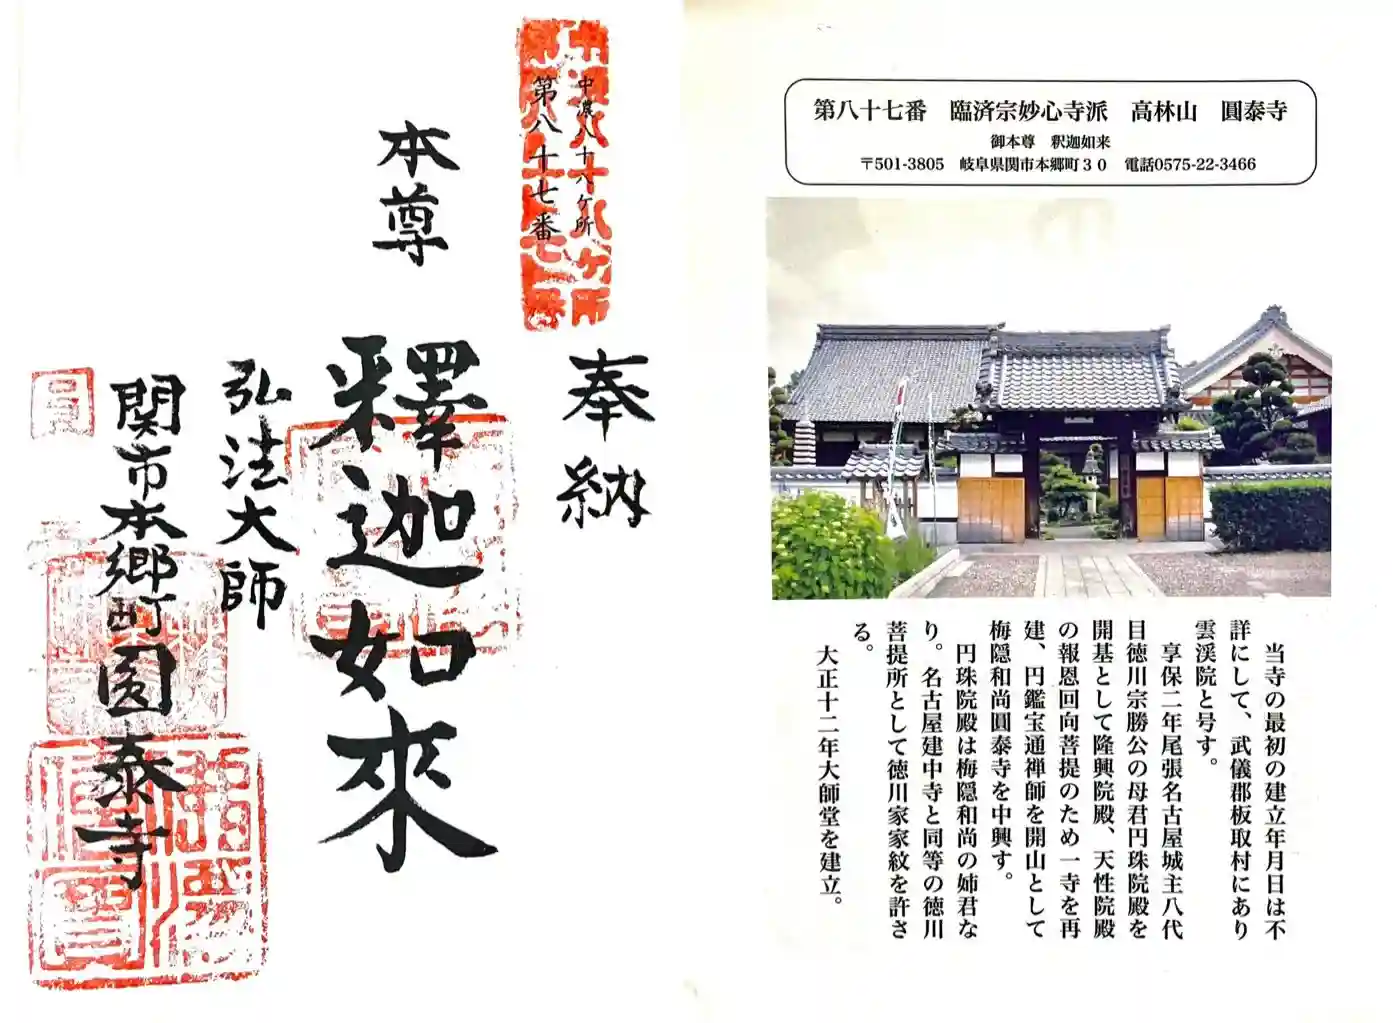 中濃八十八ヶ所
第八十七番
奉納
本尊
釋迦如來
弘法大師
関市本郷町圓泰寺
第八十七番　臨済宗妙心寺派　高林山　圓泰寺
御本尊　釈迦如来
〒501-3805　岐阜県関市本郷町３０　電話0575-22-3466
当寺の最初の建立年月日は不
詳にして、武儀郡板取村にあり
雲渓院と号す。
享保二年尾張名古屋城主八代
目徳川宗勝公の母君円珠院殿を
開基として隆興院殿、天性院殿
の報恩回向菩提のため一寺を再
建、円鑑宝通禅師を開山として
梅隠和尚圓泰寺を中興す。
円珠院殿は梅隠和尚の姉君な
り。名古屋建中寺と同等の徳川
菩提所として徳川家家紋を許さ
る。
大正十二年大師堂を建立。